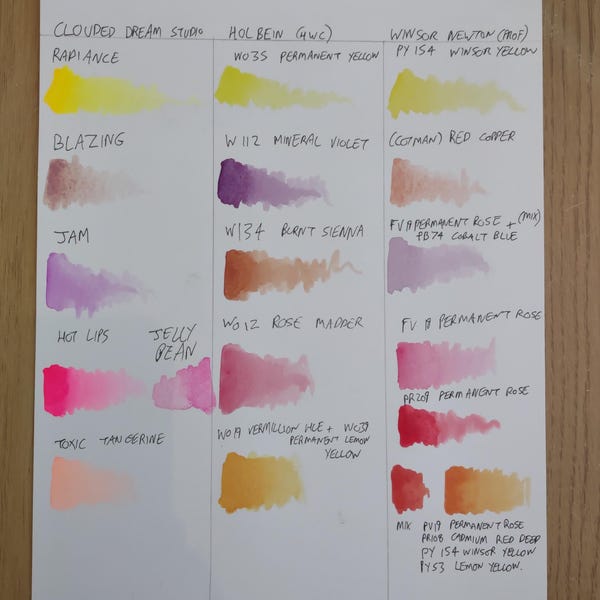 CLOUDED DREAM STUDIO
RADIANCE
BLAZING
JAM
HOT LIPS
JELLY
BEAN
TOXIC TANGERINE
HOLBEIN (HWC)
W035 PERMANENT YELLOW
W112 MINERAL VIOLET
W134 BURNT SIENNA
W012 ROSE MADDER
W019 VERMILLION HUE + W039
PERMANENT LEMON
YELLOW
WINSOR NEWTON (PROF)
PY 154 WINSOR YELLOW
(COTMAN) RED COPPER
PV19 PERMANENT ROSE + (MIX)
PB74 COBALT BLUE
PV 19 PERMANENT ROSE
PR209 PERMANENT ROSE
MIX PV19 PERMANENT ROSE
PR108 CADMIUM RED DEEP
PY 154 WINSOR YELLOW
PY53 LEMON YELLOW.